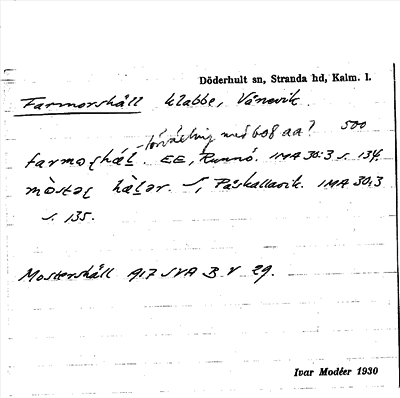 Döderhult sn, Stranda hd, Kalm. l.
Farmorshäll klabbe, Vånevik.
förväxling med 608 aa? 500
EE, Runnö. IMA 30:3 s. 134.
Påskallavik. IMA 30:3
s. 135.
Mostershäll 917 SVA B V 29.
Ivar Modéer 1930